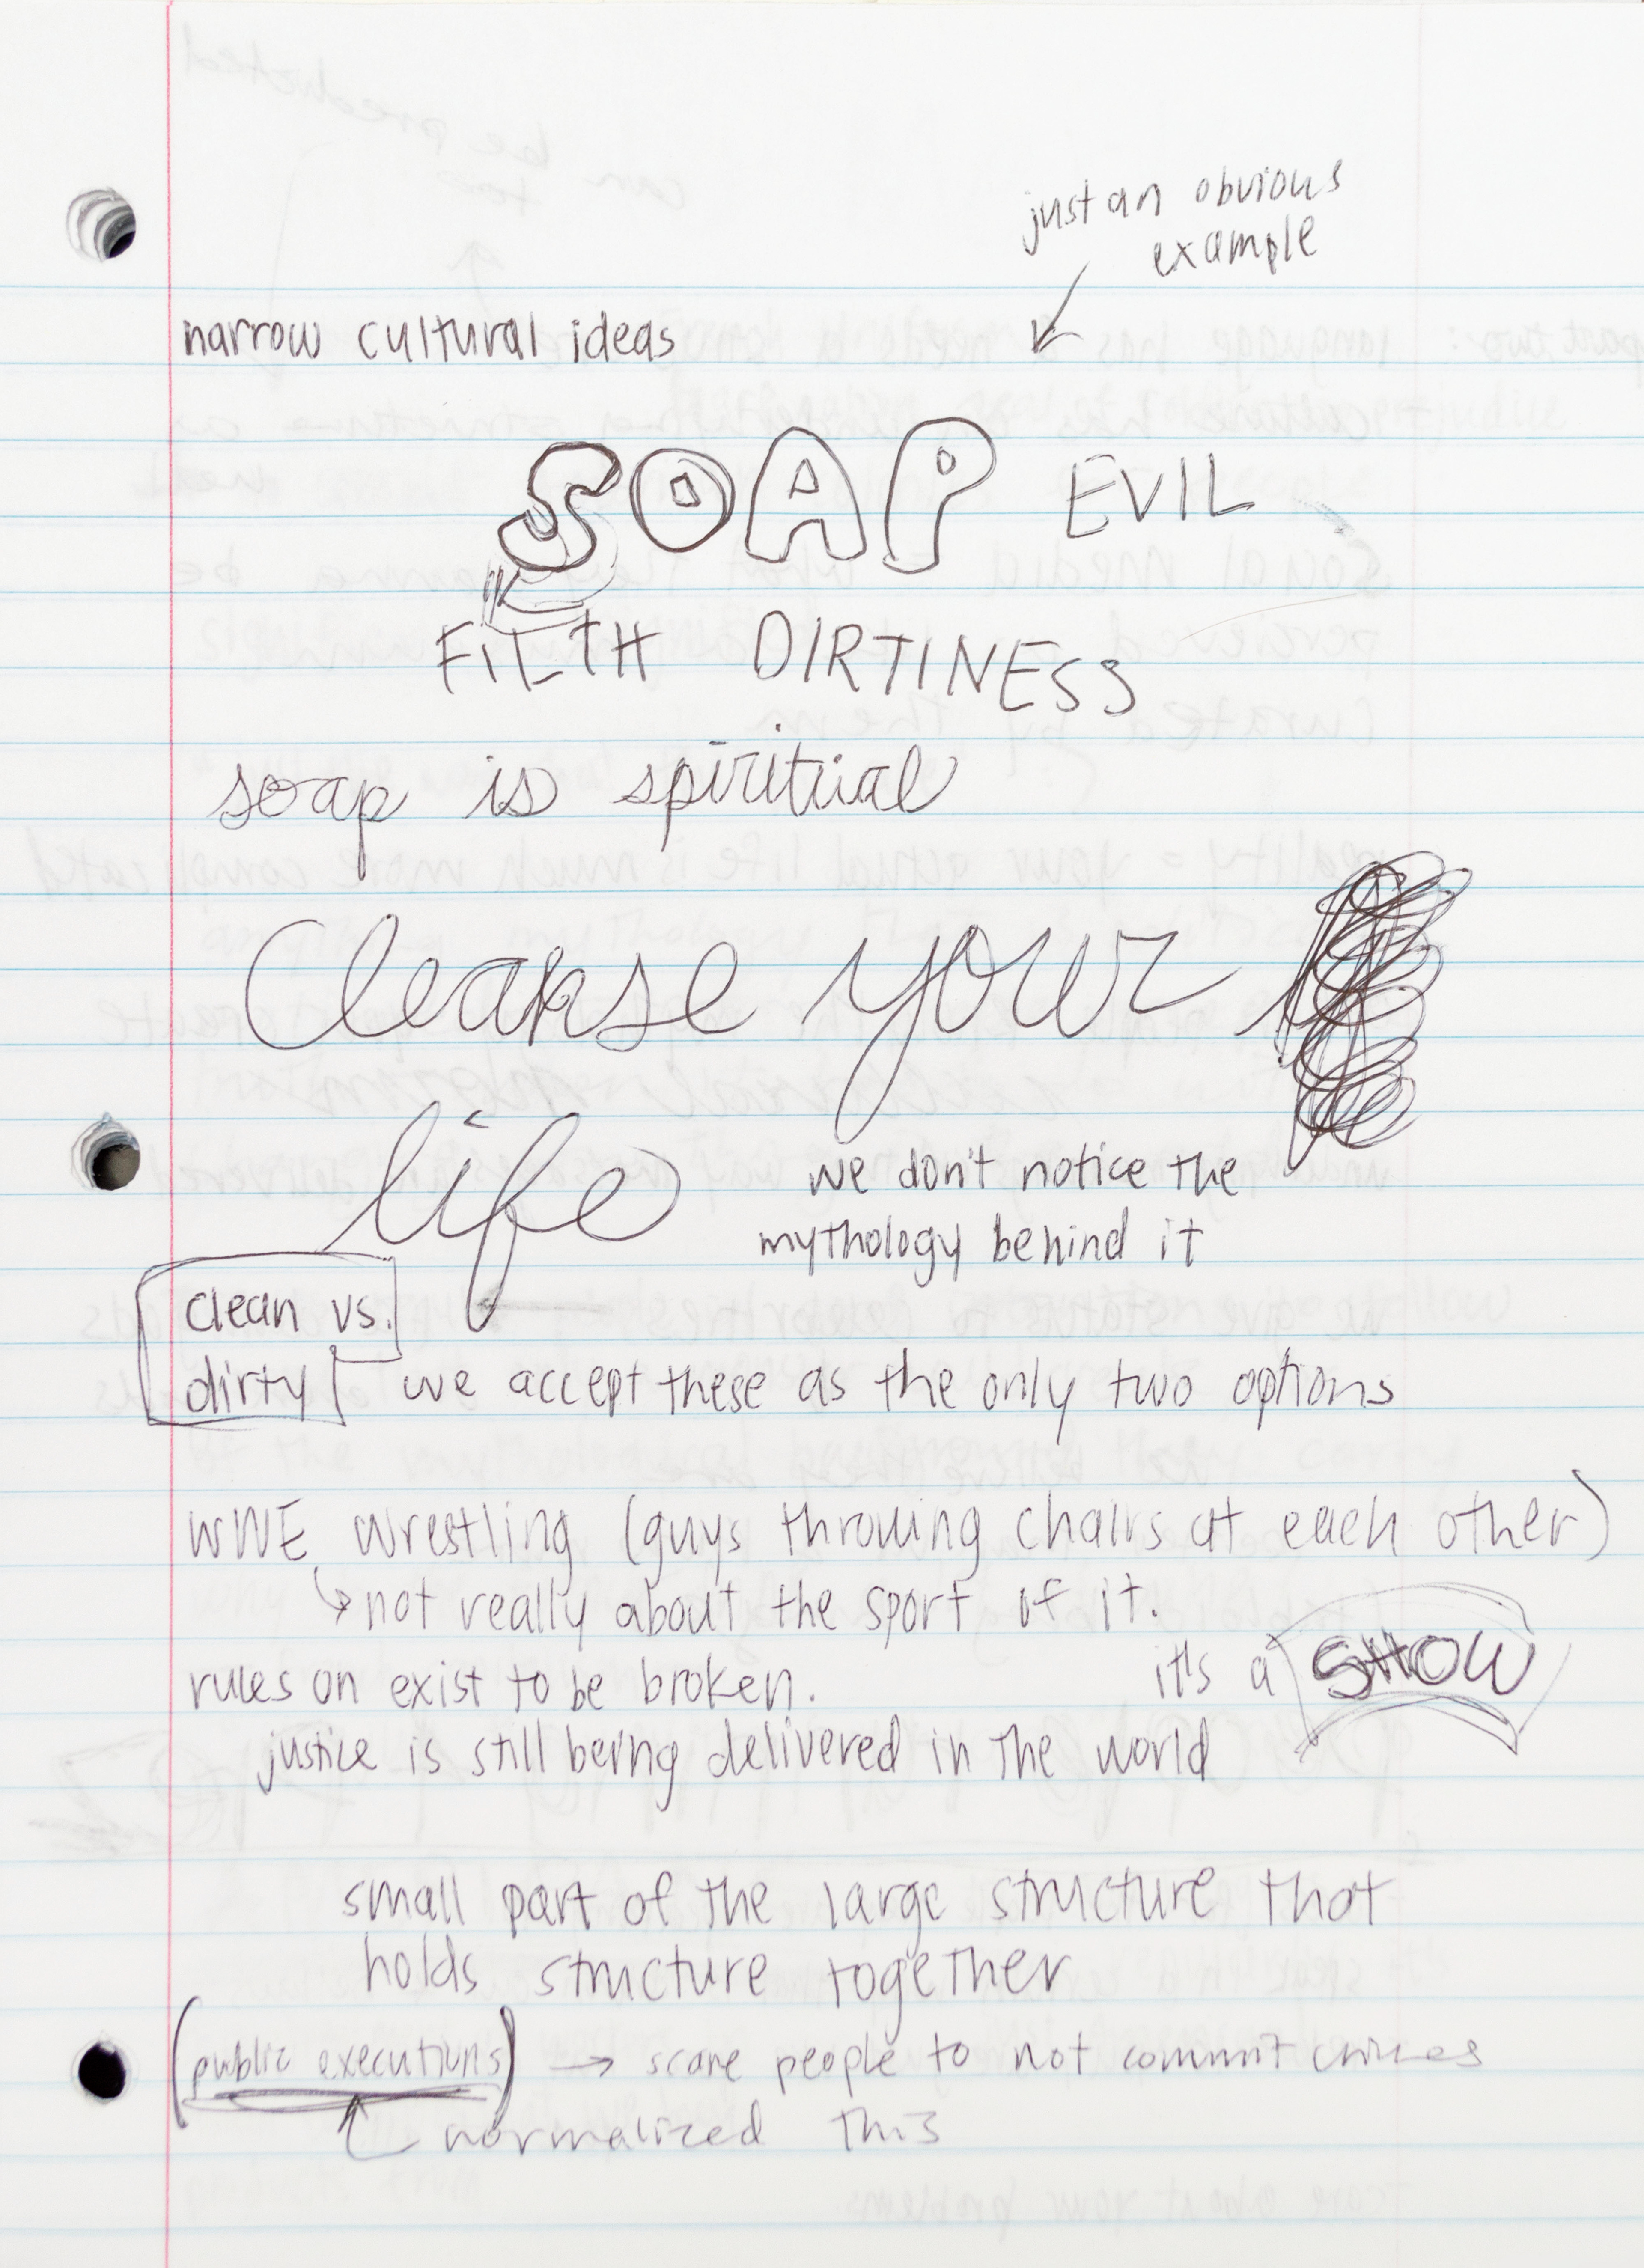 just an obvious
example
narrow cultural ideas
SOAP EVIL
FILTH DIRTINESS
soap is spiritual
Cleanse your
life
we don't notice the
mythology behind it
clean vs.
dirty we accept these as the only two options
WWE wrestling (guys throwing chairs at each other)
↳ not really about the sport of it.
rules on exist to be broken. it's a SHOW
justice is still being delivered in the world
small part of the large structure that
holds structure together
(public executions) → scare people to not commit crimes
normalized this